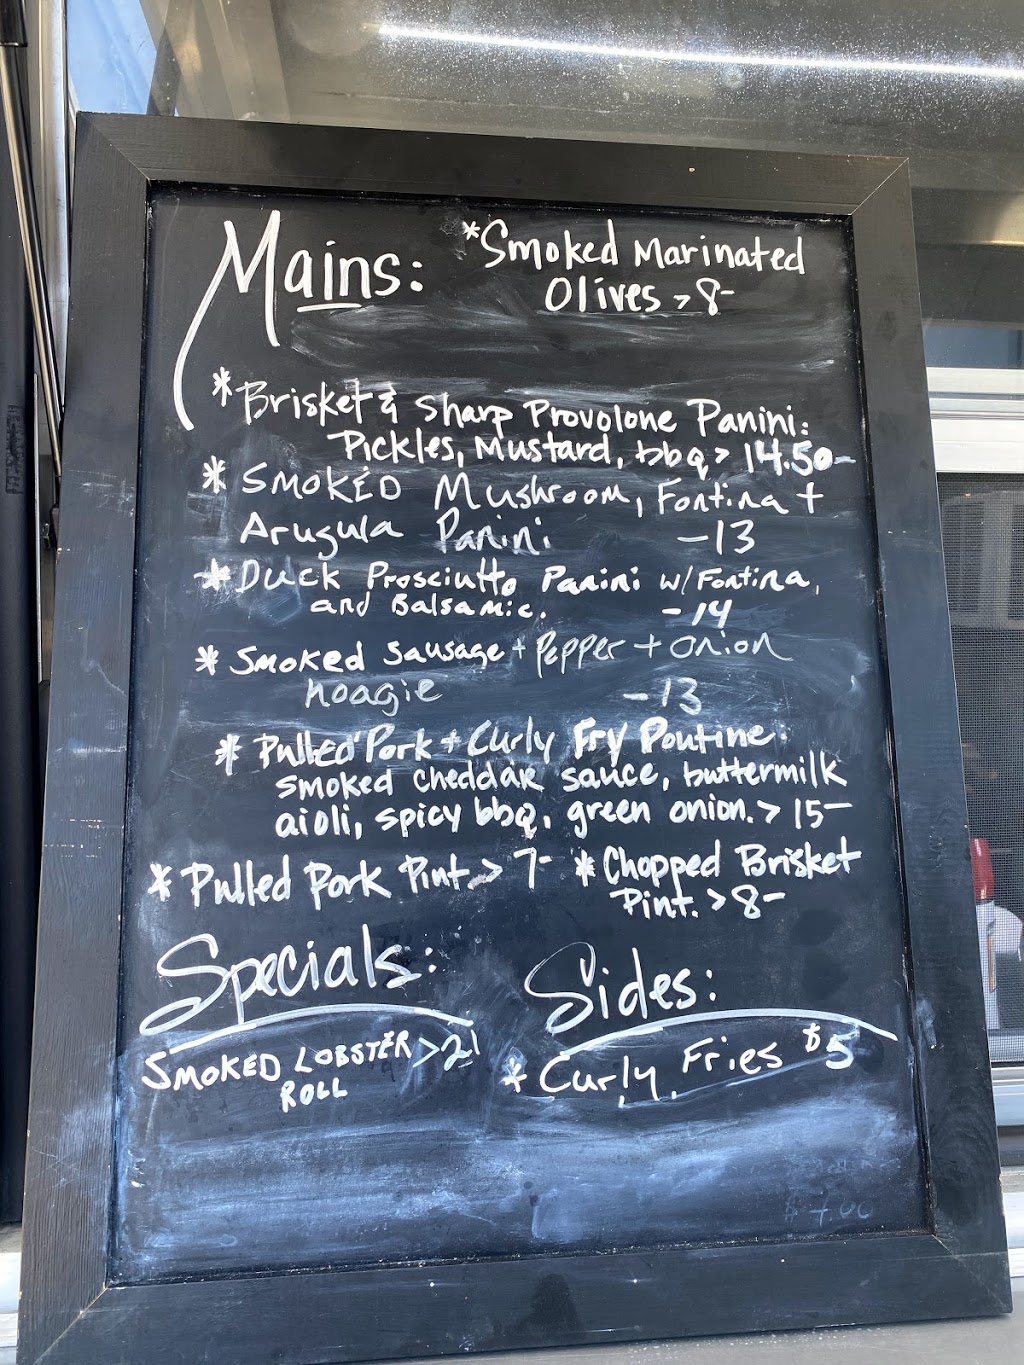 Mains:
*Smoked Marinated
Olives > 8-
*Brisket & Sharp Provolone Panini:
Pickles, Mustard, bbq > 14.50-
* SMOKED Mushroom, Fontina +
Arugula Panini -13
*Duck Prosciutto Panini w/Fontina,
and Balsamic. -14
* Smoked Sausage + Pepper + onion
hoagie -13
* Pulled Pork + Curly Fry Poutine:
smoked cheddar sauce, buttermilk
aioli, spicy bbq, green onion. > 15-
* Pulled Pork Pint > 7-
* Chopped Brisket
Pint. > 8-
Specials:
SMOKED LOBSTER > 21
ROLL
Sides:
* Curly Fries $5